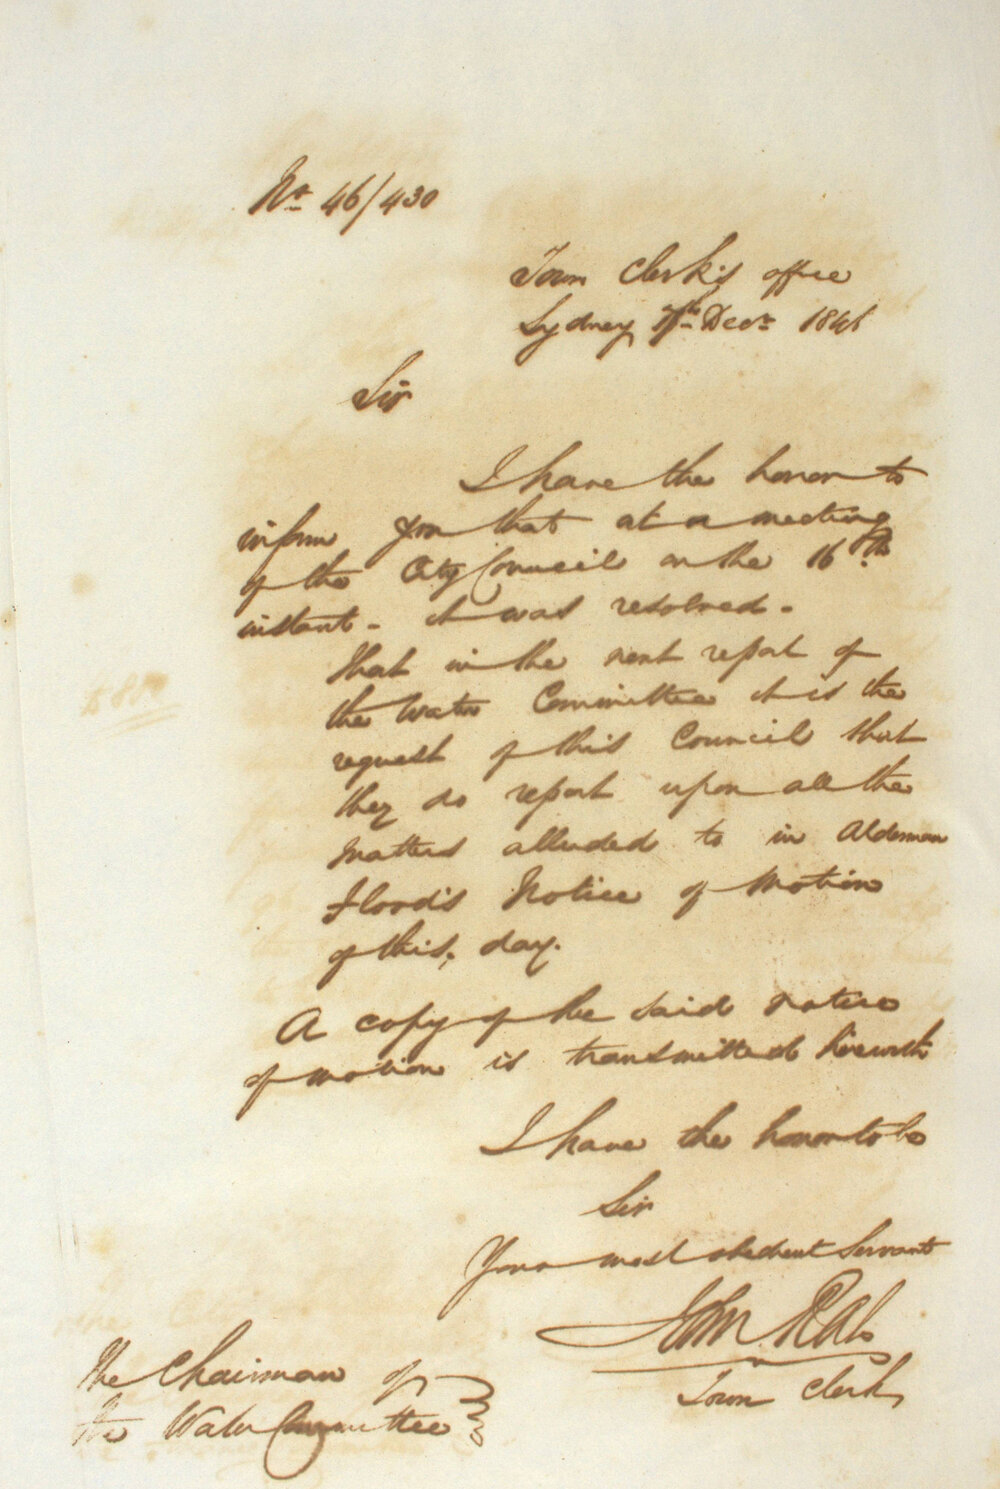 No. 46/430
Town Clerk's office
Sydney 17th Decr 1846
Sir
I have the honor to
inform you that at a meeting
of the City Council on the 16th
instant - it was resolved -
that in the next report of
the Water Committee it is the
request of this Council that
they do report upon all the
matters alluded to in Alderman
Flood's Notice of Motion
of this day.
A copy of the said notice
of motion is transmitted herewith
I have the honor to be
Sir
Your most obedient Servant
John Rae
Town Clerk
The Chairman of
the Water Committee